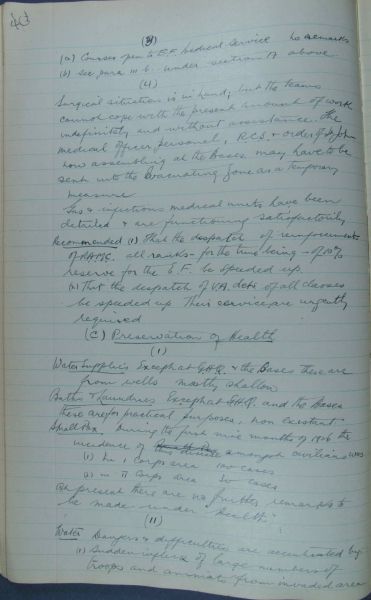 (3)
(a) Courses open to E.F. Medical Service    No remarks
(b) See para III b. under section A above
(4)
Surgical situation is in hand; but the teams
cannot cope with the present amount of work
indefinitely and without assistance. The
medical officer personnel, R.C.S. & order of St John
now assembling at the Bases may have to be
sent into the evacuating zone as a temporary
measure
Gas & infectious medical units have been
detailed & are functioning satisfactorily
Recommended (1) That the despatch of reinforcements
of RAMC. all ranks - for the time being - of 10%
reserve for the E.F. be speeded up.
(2) That the despatch of V.A. dets of all classes
be speeded up. Their services are urgently
required
(C) Preservation of Health
(1)
Water Supplies Except at G.H.Q. & the Bases these are
from wells mostly shallow
Baths & Laundries Except at G.H.Q. and the Bases
these are for practical purposes, non existent
Small Pox During the first nine months of the
incidence of amongst civilians was
(1) In I Corps area 100 cases
(2) " II Corps area 50 cases
At present there are no further remarks to
be made under "Health."
(11)
Water Dangers & difficulties are accentuated by
(1) Sudden influx of large numbers of
troops and animals from invaded area